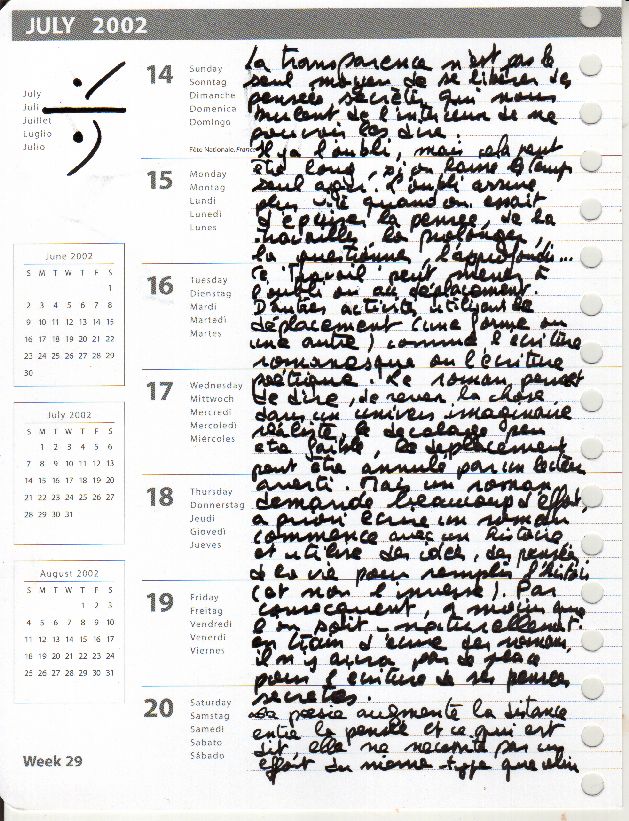 JULY 2002
July
Juli
Juillet
Luglio
Julio
14
Sunday
Sonntag
Dimanche
Domenica
Domingo
Fête Nationale, France
15
Monday
Montag
Lundi
Lunedì
Lunes
16
Tuesday
Dienstag
Mardi
Martedì
Martes
17
Wednesday
Mittwoch
Mercredi
Mercoledì
Miércoles
18
Thursday
Donnerstag
Jeudi
Giovedì
Jueves
19
Friday
Freitag
Vendredi
Venerdì
Viernes
20
Saturday
Samstag
Samedi
Sabato
Sábado
June 2002
S M T W T F S
1
2 3 4 5 6 7 8
9 10 11 12 13 14 15
16 17 18 19 20 21 22
23 24 25 26 27 28 29
30
July 2002
S M T W T F S
1 2 3 4 5 6
7 8 9 10 11 12 13
14 15 16 17 18 19 20
21 22 23 24 25 26 27
28 29 30 31
August 2002
S M T W T F S
1 2 3
4 5 6 7 8 9 10
11 12 13 14 15 16 17
18 19 20 21 22 23 24
25 26 27 28 29 30 31
Week 29
La transparence n'est pas le
seul moyen de se libérer des
pensées secrètes qui nous
brûlent de l'intérieur de ne
pouvoir les dire.
Il y a l'oubli, mais cela peut
être long, si on laisse le temps
seul agir. L'oubli arrive
plus vite quand on essait
d'épuiser la pensée, de la
travailler, la prolonger,
la questionner, l'approfondir...
Ce travail peut mener à
l'oubli ou au déplacement.
D'autres activités utilisent le
déplacement (une forme ou
une autre) comme l'écriture
romanesque ou l'écriture
poétique. Le roman permet
de dire, de rêver la chose
dans un univers imaginaire
réaliste, le décalage peu
être faible, le déplacement
peut être annulé par un lecteur
averti. Mais un roman
demande beaucoup d'effort,
a priori écrire un roman
commence avec une histoire
et utilise des idées, des pensées
de la vie pour remplir l'histoire
(et non l'inverse). Par
conséquent, à moins que
l'on soit - naturellement -
en train d'écrire des romans,
il n'y aura pas de place
pour l'écriture de ses pensées
secrètes.
La poésie augmente la distance
entre la pensée et ce qui est
dit, elle ne nécessite pas un
effort du même type que celui